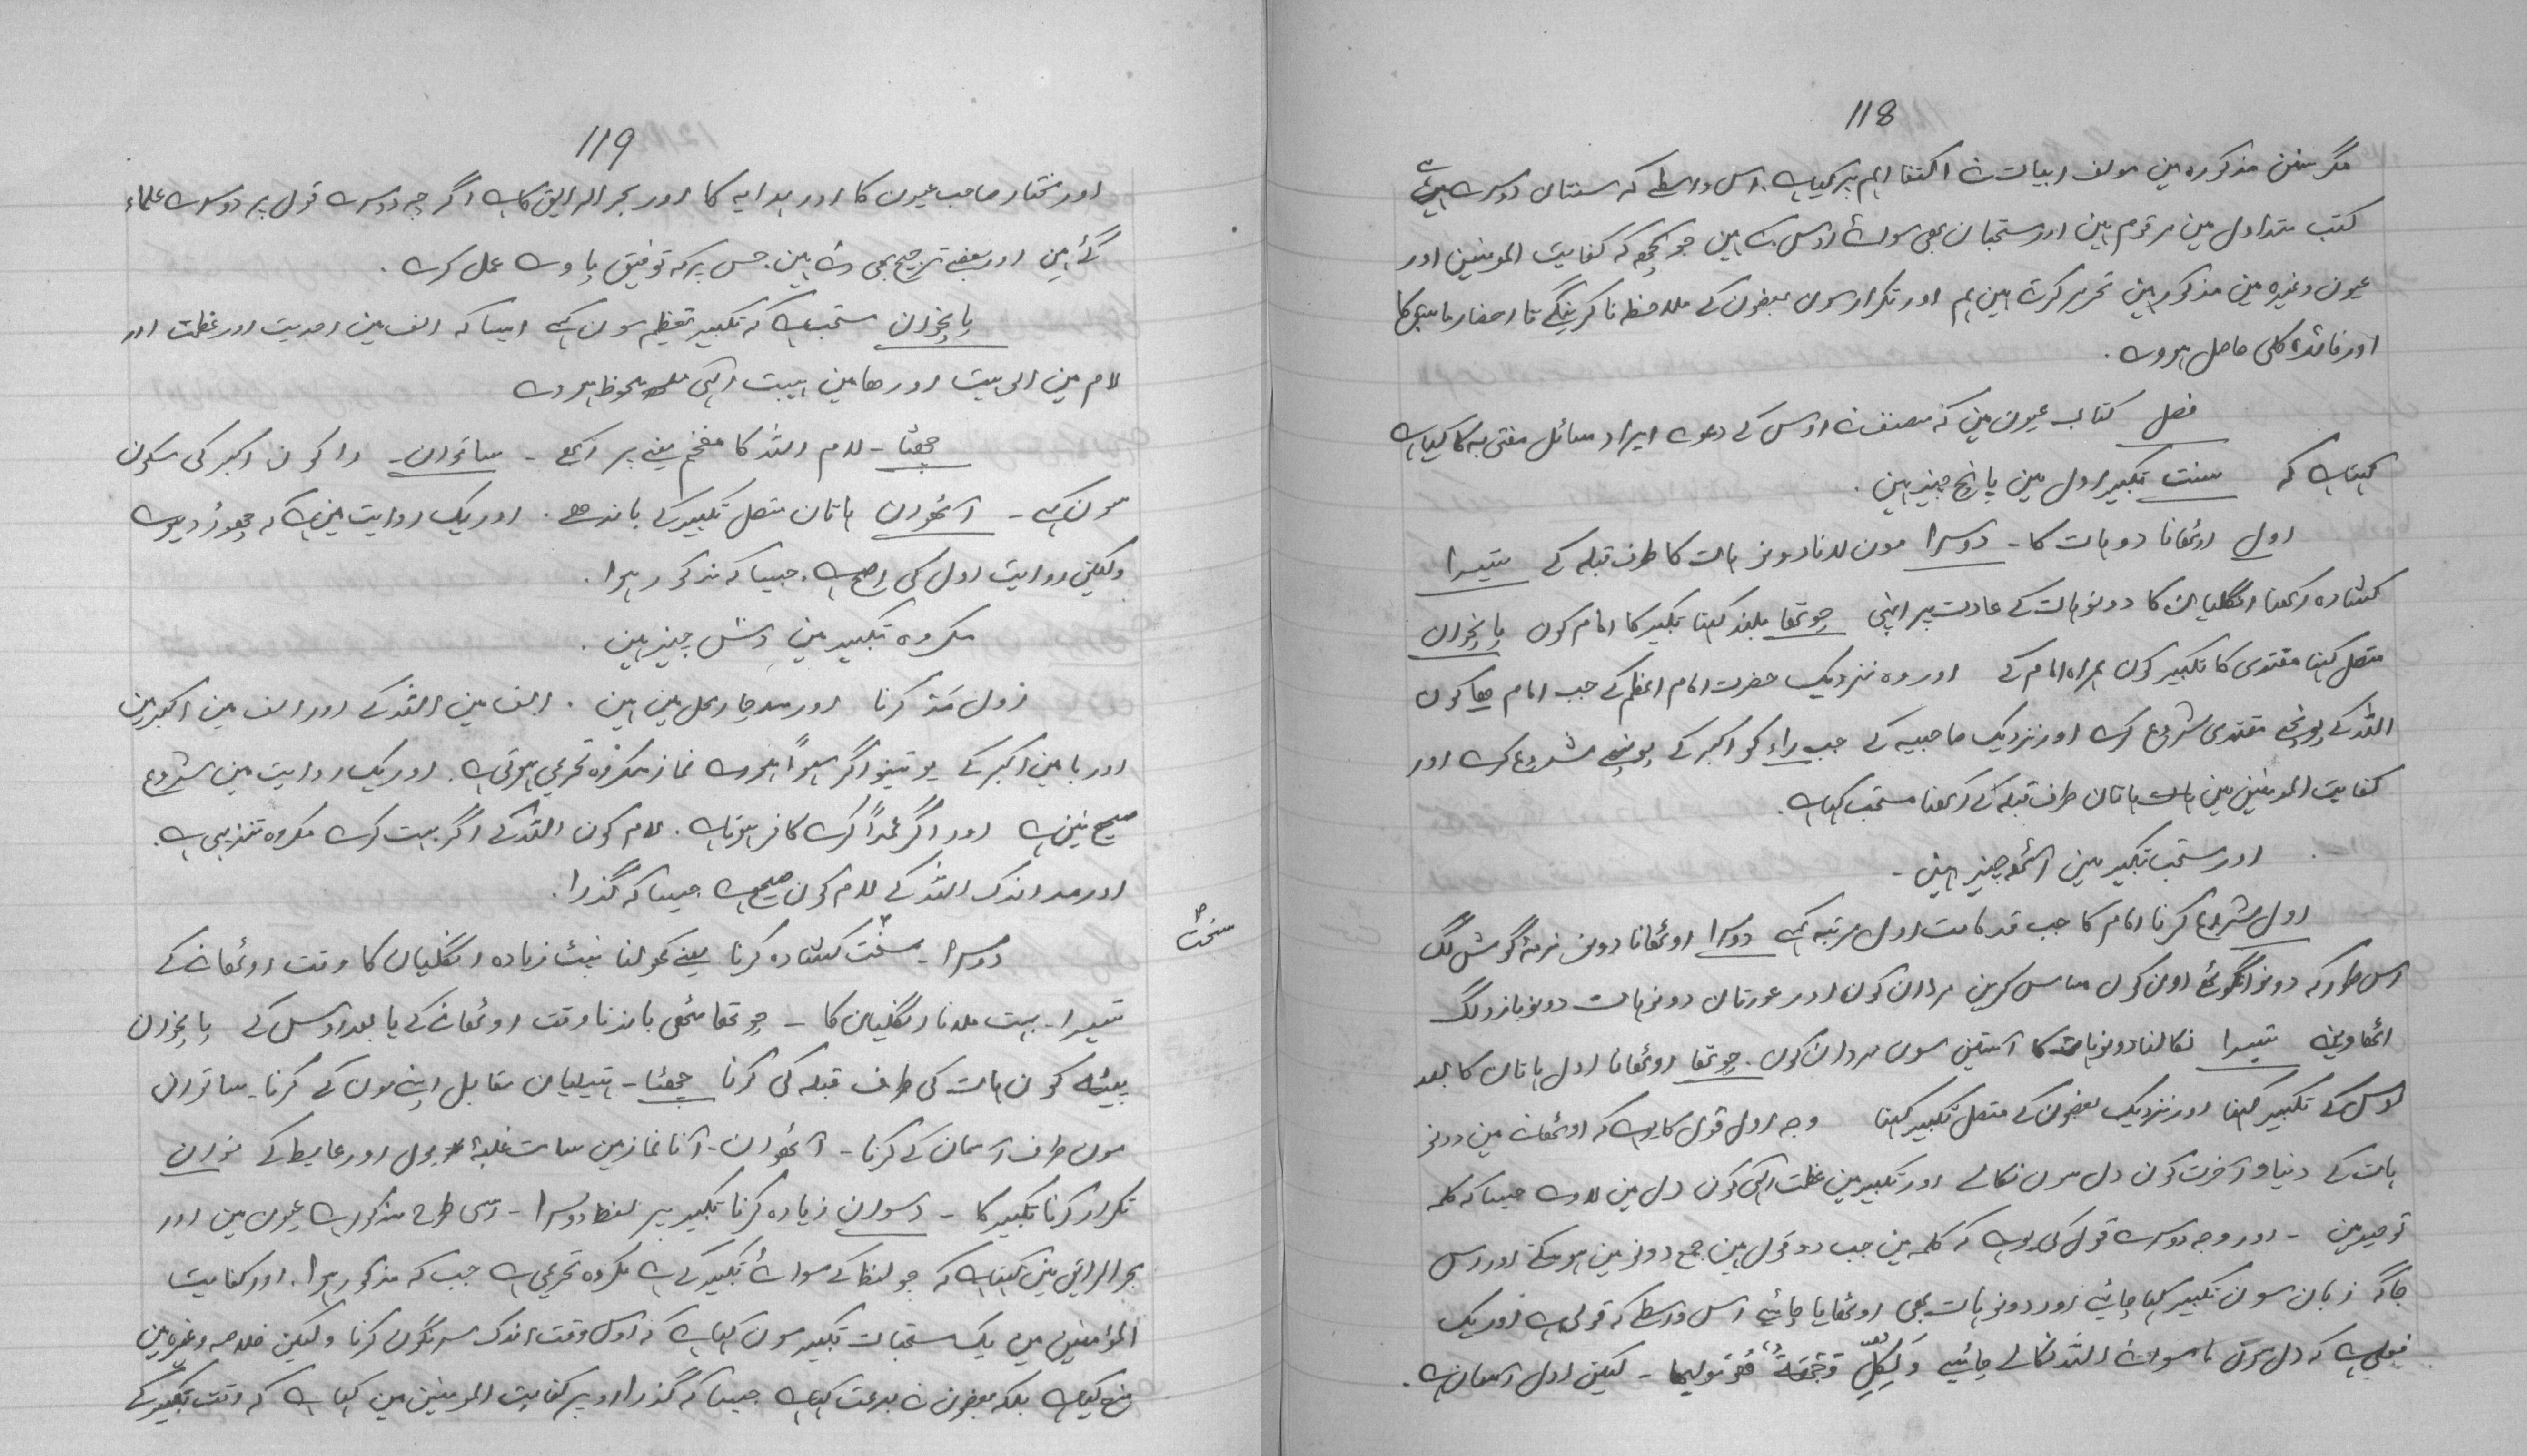 118
مگر سنن مذکورہ مین مولف ابیات نے اکتفا اہم پر کیا ہے اس واسطے کہ سنتاں دوسرے
کتب متداول مین مرقوم ہین اور مستحبان بھی سوائے اوس کے ہین جو کچھ کہ کفایت المومنین اور
عیون وغیرہ مین مذکور ہین تحریر کرتے ہین ہم اور تکرار سون بعضون کے ملاحظہ نا کرینگے تا احضار
اور فائدہ کلی حاصل ہووے .
فصل کتاب عیون مین کہ مصنف نے اوس کے دعوہ ایراد مسائل مفتی بہ کا کیا ہے
کہتا ہے کہ سنت تکبیر اول مین پانچ چیز ہین .
اول اوٹھانا دو ہات کا - دوسرا مون لانا دونو ہات کا طرف قبلہ کے تیسرا
کشادہ رکھنا انگلیان کا دونو ہات کے عادت پر اپنی چوتھا بلند کہنا تکبیر کا امام کون پانچوان
متصل کہنا مقتدی کا تکبیر کون ہمراہ امام کے اور وہ نزدیک حضرت امام اعظم کے جب امام ھا کون
اللہ کے پونہچے مقتدی شروع کرے اور نزدیک صاحبیہ کے جب راء کو اکبر کے پونہچے شروع کرے اور
کفایت المومنین مین ہاتان طرف قبلہ کے رکھنا مستحب کہا ہے .
اور مستحب تکبیر مین آٹھ چیز ہین -
اول شروع کرنا امام کا جب قد قامت اول مرتبہ کہے دوسرا اوٹھانا دونو نرمۂ گوش لگ
اس طور کہ دونو انگوٹھے اون کون مساس کرین مردان کون اور عورتان دونو ہات دونو بازو لگ
اٹھاوینہ تیسرا نکالنا دونو ہات کا آستین سون مردان کون . چوتھا اوٹھانا اول ہاتان کا بعد
اوس کے تکبیر کہنا اور نزدیک بعضون کے متصل تکبیر کہنا وجہ اول قول کا یو ہے کہ اوٹھانے مین دونو
ہات کے دنیا و آخرت کون دل سون نکالے اور تکبیر مین عظمت الٰہی کون دل مین لاوے جیسا کہ کلمہ
توحید مین - اور وجہ دوسرے قول کی یو ہے کہ کلمہ مین جب دو قول ہین جمع دونو مین ہو سکے اور اس
جاگہ زبان سون تکبیر کہا جائیے اور دونو ہات بھی اوٹھایا جائیے اس واسطے کہ قولی ہے اور یک
فعلی ہے کہ دل سون ما سوائے اللہ نکالے جائیے وَلِکُلٍّ وِّجْهَةٌ هُوَ مُوَلِّيهَا - لیکن اول آسان ہے .
119
اور مختار صاحب عیون کا اور ہدایہ کا اور بحر الرایق کا ہے اگر چہ دوسرے قول پر دوسرے علماء
گئے ہین اور بعضے ترجیح بھی دئے ہین . جس پر کہ توفیق پاوے عمل کرے .
پانچوان مستحب ہے کہ تکبیر تعظیم سون کہے ایسا کہ الف مین احدیت اور عظمت اور
لام مین الہیت اور ھا مین ہیبت الٰہی ملحوظ ہووے
چھٹا - لام اللہ کا مفخم یعنے پر رکھے - ساتوان - را کون اکبر کی سکون
سون کہے - آٹھوان ہاتان متصل تکبیر کے باندھے . اور یک روایت مین ہے کہ چھوڑ دیوے
ولیکن روایت اول کی اصح ہے . جیسا کہ مذکور ہوا .
مکروہ تکبیر مین دس چیز ہین .
اول مَد کرنا اور مد چار محل مین ہین . الف مین اللہ کے اور الف مین اکبر مین
اور با مین اکبر کے یو تینو اگر سہواً ہووے نماز مکروہ تحریمی ہوتی ہے . اور یک روایت مین شروع
صحیح نین ہے اور اگر عمداً کرے کافر ہوتا ہے . لام کون اللہ کے اگر بہت کرے مکروہ تنزیہی ہے .
اور مد اندک اللہ کے لام کون صحیح ہے جیسا کہ گذرا .
سخت
دوسرا - سخت کشادہ کرنا یعنے کھولنا بہت زیادہ انگلیان کا وقت اوٹھانے کے
تیسرا - بہت ملانا انگلیان کا - چوتھا مٹھی باندنا وقت اوٹھانے کے یا بعد اوس کے پانچوان
پیٹھ کون ہات کی طرف قبلہ کی کرنا چھٹا - ہتیلیان مقابل اپنے مون کے کرنا - ساتوان
مون طرف آسمان کے کرنا - آٹھوان - آنا نماز مین سات غلبۂ بول اور غایط کے نوان
تکرار کرنا تکبیر کا - دسوان زیادہ کرنا تکبیر پر لفظ دوسرا - اسی طرح مذکور ہے عیون مین اور
بحر الرائق مین کہتا ہے کہ جو لفظ کے سوائے تکبیر کے ہے مکروہ تحریمی ہے جیسا کہ مذکور ہوا . اور کفایت
المؤمنین مین یک مستحبات تکبیر سون کہا ہے کہ اوس وقت اندک سر نگون کرنا ولیکن خلاصہ وغیرہ مین
منع کیا ہے بلکہ بعضون نے بدعت کہا ہے جیسا کہ گذرا اوپر کفایت المومنین مین کہا ہے کہ وقت تکبیر کے